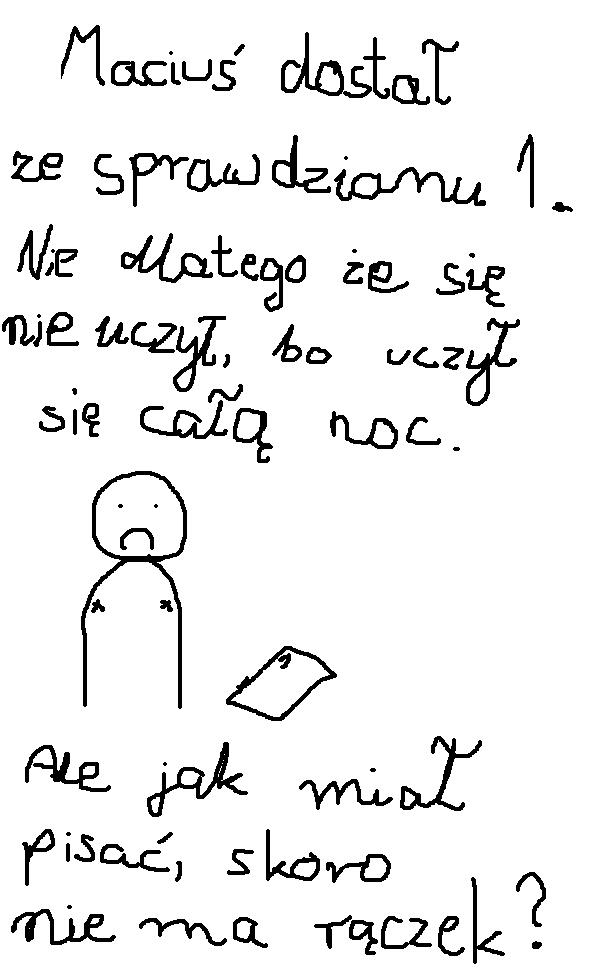 Maciuś dostał
ze sprawdzianu 1.
Nie dlatego że się
nie uczył, bo uczył
się całą noc.
1
Ale jak miał
pisać, skoro
nie ma rączek?